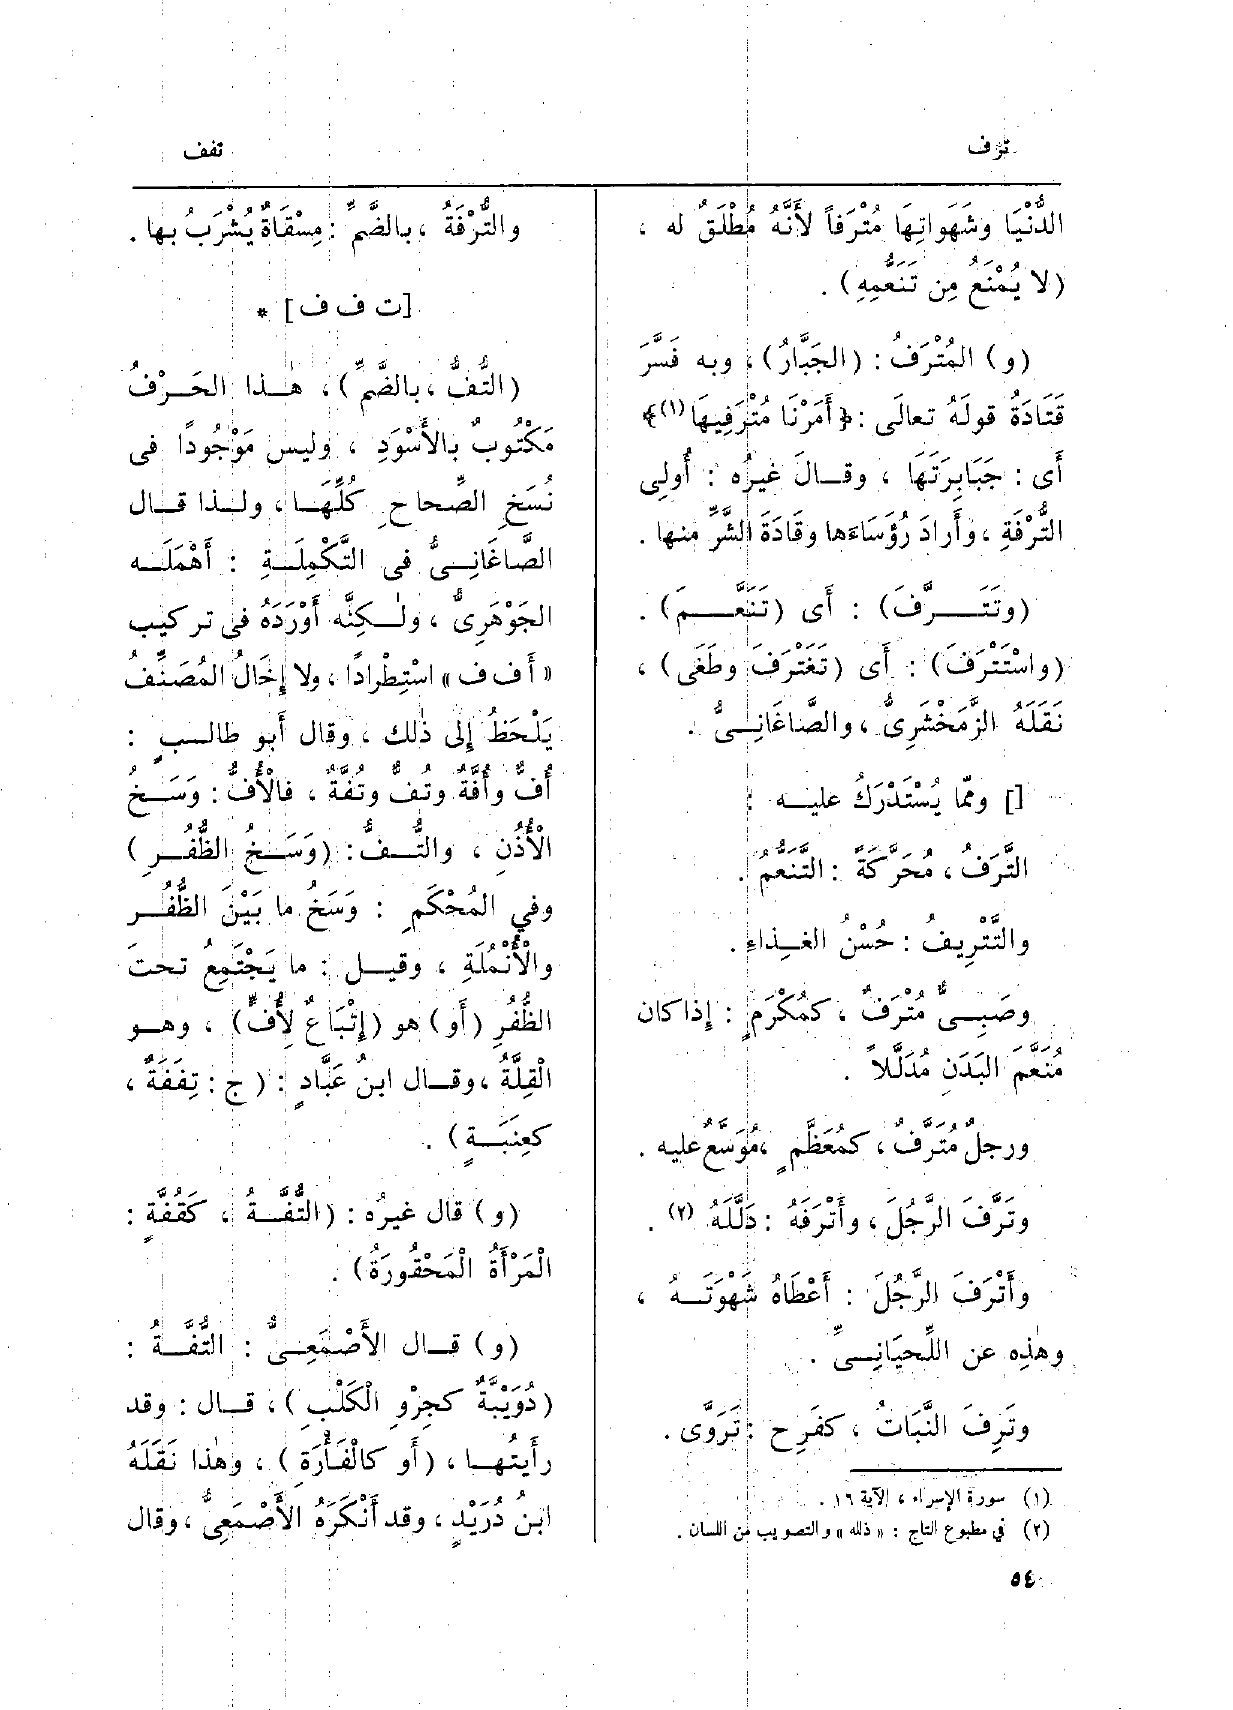 ترف
تفف
الدُّنْيَا وشَهَواتِهَا مُتْرَفاً لأَنَّهُ مُطْلَقٌ له ،
(لا يُمْنَعُ مِن تَنَعُّمِهِ) .
(و) المُتْرَفُ : (الجَبَّارُ) ، وبه فَسَّرَ
قَتَادَةُ قولَهُ تعالَى : ﴿أَمَرْنَا مُتْرَفِيهَا (١)﴾
أَى : جَبَابِرَتَهَا ، وقــالَ غيرُه : أُولِى
التُّرْفَةِ ، وأَرادَ رُؤَسَاءَها وقَادَةَ الشَّرِّ منها .
(وتَتَــرَّفَ) : أَى (تَنَعَّــمَ) .
(واسْتَتْرَفَ) : أَى (تَغَتْرَفَ وطَغَى) ،
نَقَلَهُ الزَّمَخْشَرِىُّ ، والصَّاغَانِــىُّ .
[] وممّا يُسْتَدْرَكُ عليــه :
التَّرَفُ ، مُحَرَّكَةً : التَّنَعُّمُ .
والتَّتْرِيفُ : حُسْنُ الغِــذاءِ .
وصَبِــىٌّ مُتْرَفٌ ، كمُكْرَمٍ : إِذا كان
مُنَعَّمَ البَدَنِ مُدَلَّلاً .
ورجلٌ مُتَرَّفٌ ، كمُعَظَّمٍ ، مُوَسَّعٌ عليه .
وتَرَّفَ الرَّجُلَ ، وأَتْرَفَهُ : دَلَّلَهُ (٢) .
وأَتْرَفَ الرَّجُلَ : أَعْطَاهُ شَهْوَتَــهُ ،
وهٰذِه عن اللِّحْيَانِــىِّ .
وتَرِفَ النَّبَاتُ ، كفَرِحَ : تَرَوَّى .
(١) سورة الإسراء ، الآية ١٦ .
(٢) فى مطبوع التاج : « ذلله » والتصويب من اللسان .
٥٤
والتُّرْفَةُ ، بالضَّمِّ : مِسْقَاةٌ يُشْرَبُ بها .
[ت ف ف] *
(التُّفُّ ، بالضَّمِّ) ، هٰـذا الحَـرْفُ
مَكْتُوبٌ بالأَسْوَدِ ، وليس مَوْجُودًا فى
نُسَخِ الصِّحاحِ كلِّهَــا ، ولــذا قــال
الصَّاغَانِــىُّ فى التَّكْمِلَــةِ : أَهْمَلَــه
الجَوْهَرِىُّ ، ولٰــكِنَّه أَوْرَدَهُ فى تركيب
« أ ف ف » اسْتِطْرادًا ، ولا إِخَالُ المُصَنِّفَ
يَلْحَظُ إِلى ذٰلك ، وقال أَبو طالــبٍ :
أُفٌّ وأُفَّةٌ وتُفٌّ وتُفَّةٌ ، فالْأُفُّ : وَسَــخُ
الْأُذُنِ ، والتُّــفُّ : (وَسَــخُ الظُّفُــرِ)
وفي المُحْكَمِ : وَسَخُ ما بَيْنَ الظُّفُــرِ
والْأَنْمُلَةِ ، وقيــل : ما يَجْتَمِعُ تحتَ
الظُّفُرِ (أَو) هو (إِتْبَاعٌ لِأُفٍّ) ، وهــو
الْقِلَّةُ ، وقــال ابنُ عَبَّادٍ : (ج : تِفَفَةٌ ،
كعِنَبَــةٍ) .
(و) قال غيرُه : (التُّفَّــةُ ، كَقُفَّةٍ :
الْمَرْأَةُ الْمَحْقُورَةُ) .
(و) قــال الأَصْمَعِــىُّ : التُّفَّــةُ :
(دُوَيْبَّةٌ كجِرْوِ الْكَلْبِ) ، قــال : وقد
رأَيتُهــا ، (أَو كالْفَأْرَةِ) ، وهٰذا نَقَلَهُ
ابنُ دُرَيْدٍ ، وقد أَنْكَرَهُ الأَصْمَعِىُّ ، وقال